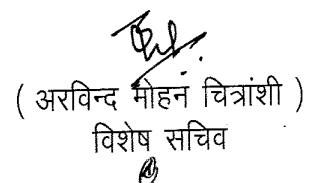 ( अरविन्द मोहन चित्रांशी )
विशेष सचिव